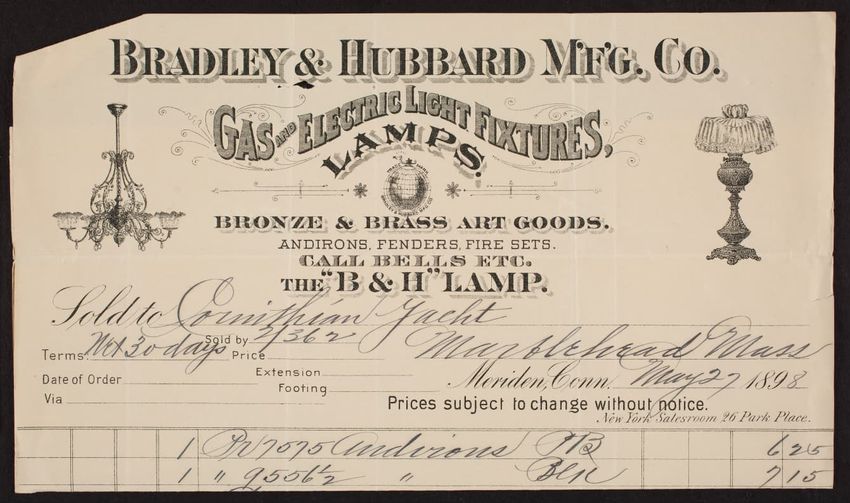 BRADLEY & HUBBARD M'F'G. CO.
GAS AND ELECTRIC LIGHT FIXTURES,
LAMPS.
BRONZE & BRASS ART GOODS.
ANDIRONS, FENDERS, FIRE SETS.
CALL BELLS ETC.
THE "B & H" LAMP.
Sold to Corinthian Yacht
Sold by 2/362 Marblehead Mass
Terms: Net 30 days Price
Date of Order Extension Meriden, Conn. May 27 1898
Via Footing Prices subject to change without notice.
New York Salesroom 26 Park Place.
1 Pr 7075 Andirons PB 6 25
1 " 9556½ " Blk 7 15